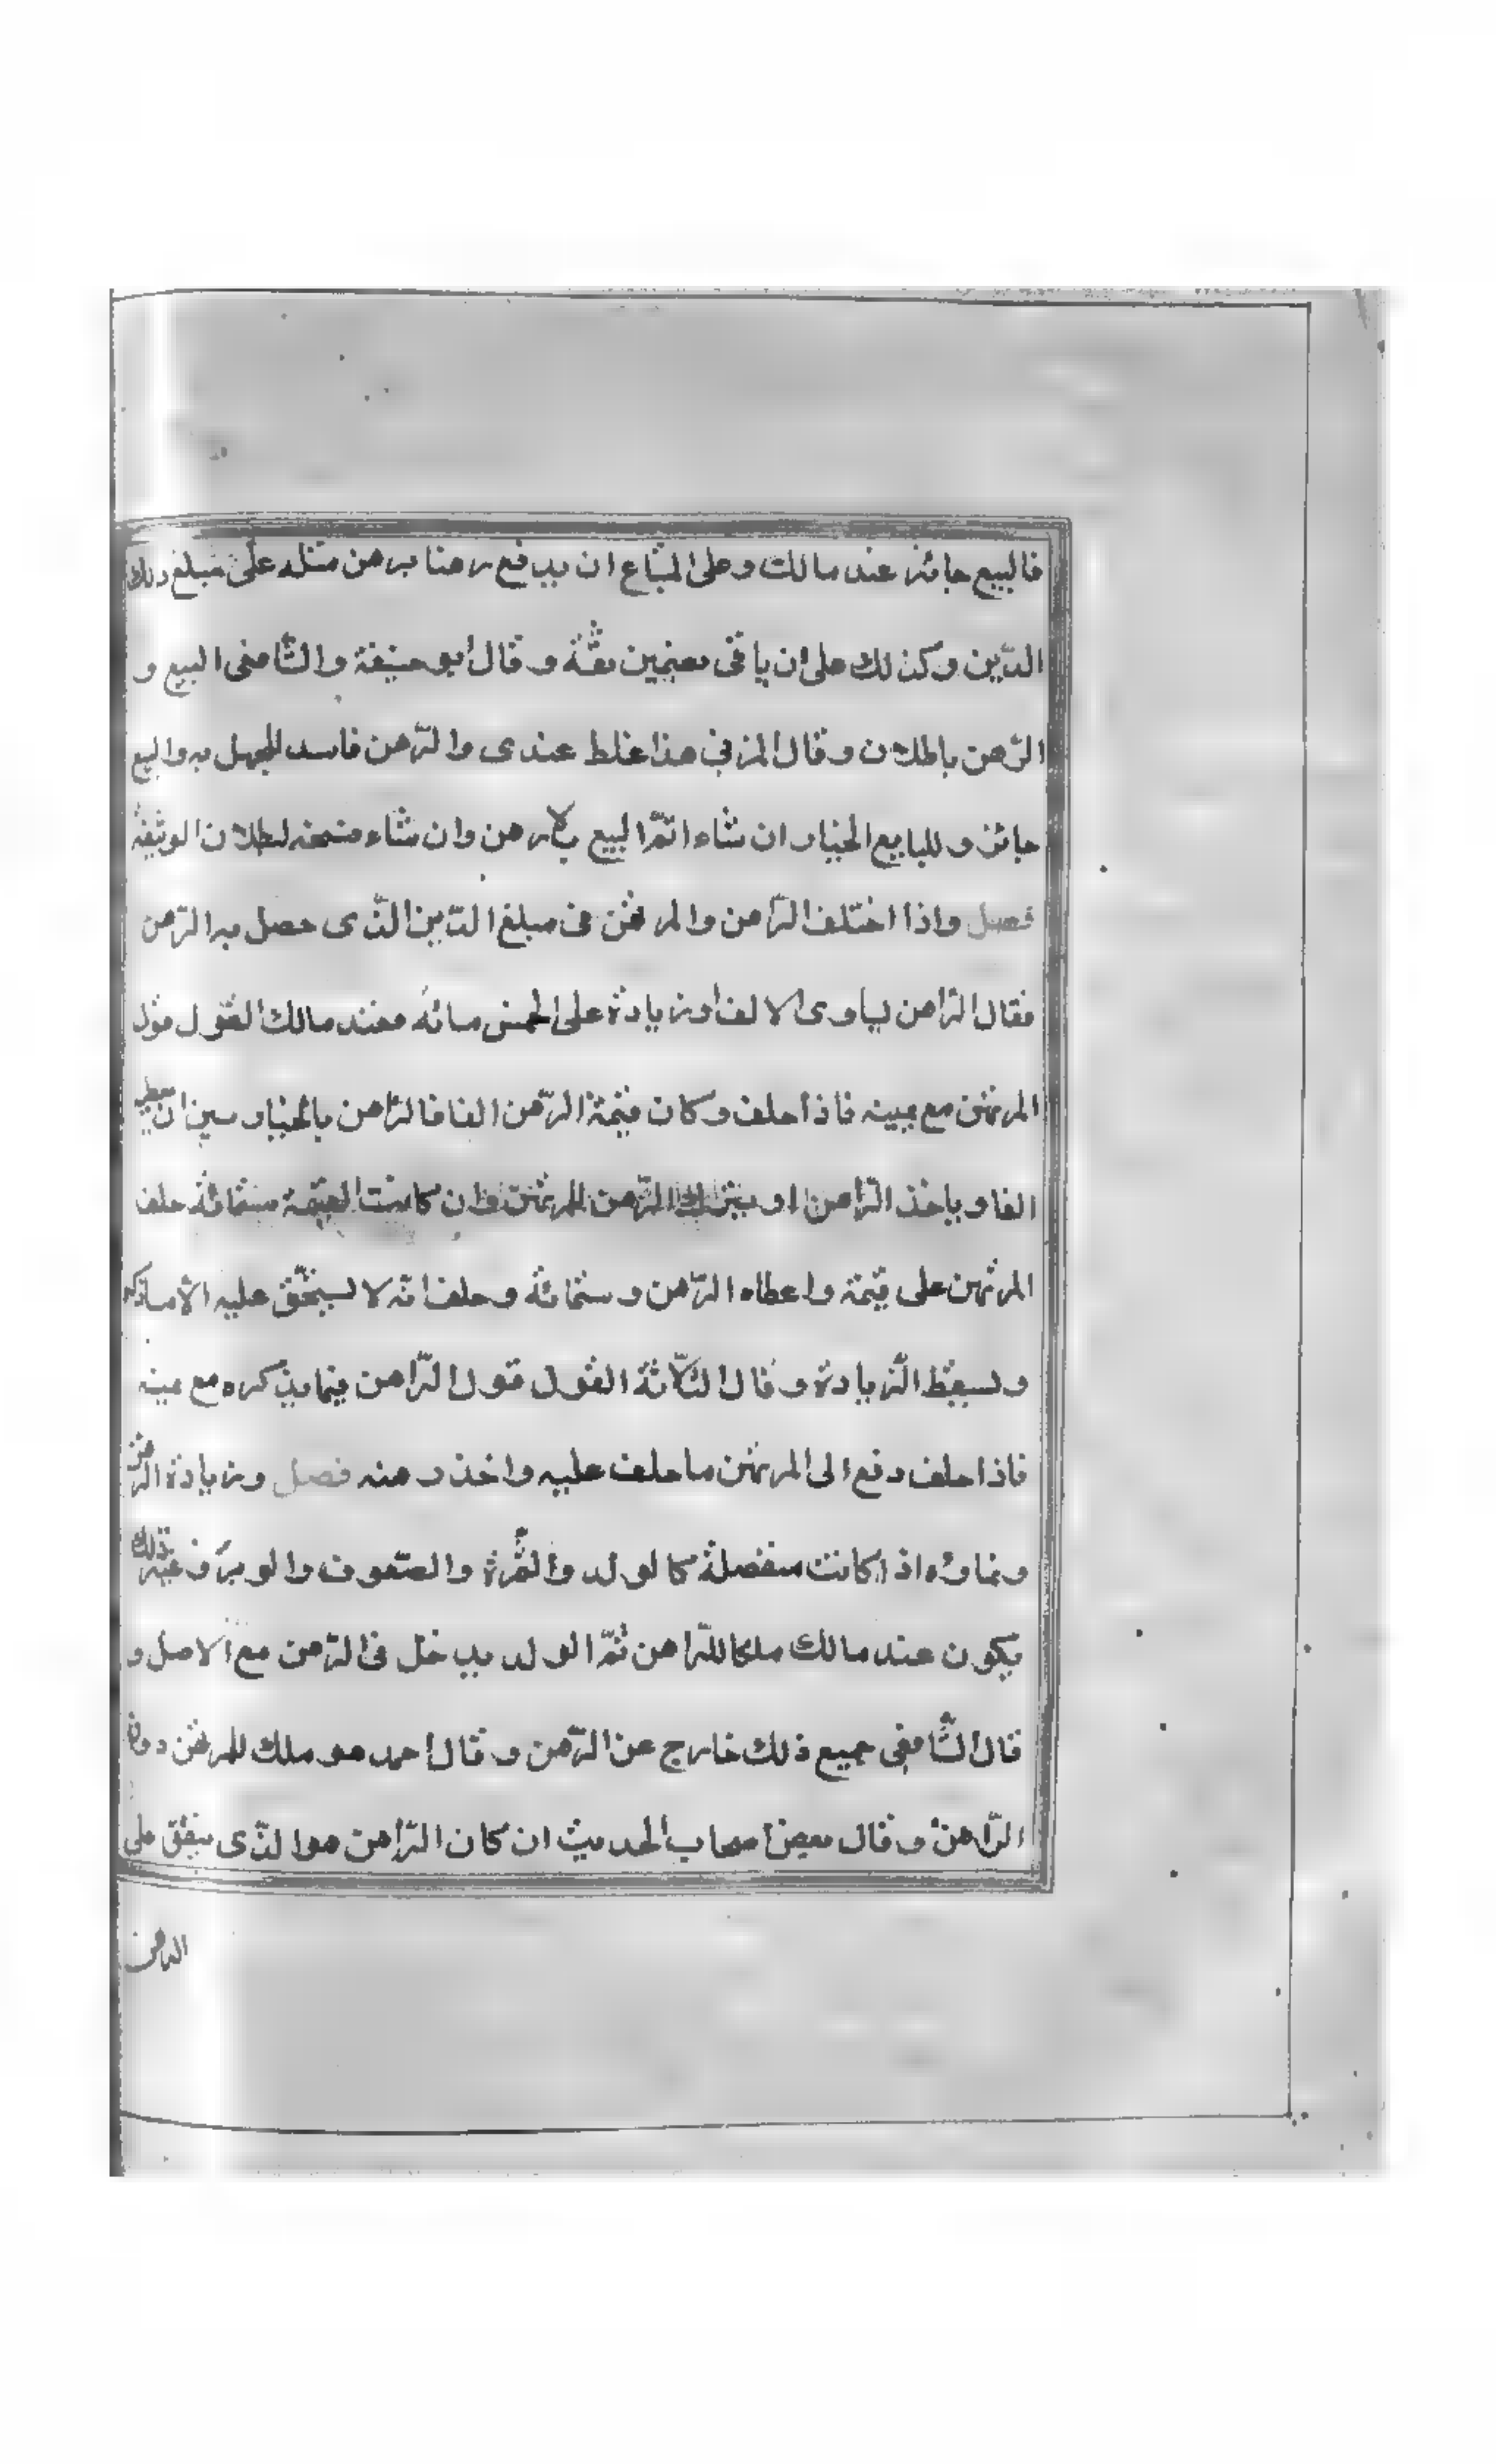 فالبيع جائز عند مالك وعلى المبتاع ان يدفع رهنا برهن مثله على مبلغ ذلك
الدّين وكذلك على ان ياتى بضمين ثقة وقال أبو حنيفة والشافعى البيع و
الرّهن باطلان وقال المزنى هذا غلط عندى والرّهن فاسد للجهل به والبيع
جائز وللبايع الخيار ان شاء اتمّ البيع بلا رهن وان شاء فسخه لبطلان الوثيقة
فصل واذا اختلف الرّاهن والمرتهن فى مبلغ الدّين الذّى حصل به الرّهن
فقال الرّاهن يساوى الالف او زيادة على الخمس مائة فعند مالك القول قول
المرتهن مع يمينه فاذا حلف وكان قيمة الرّهن الفا فالرّاهن بالخيار بين ان يعطيه
الفا وياخذ الرّاهن او يترك الرّهن للمرتهن وان كانت القيمة ستمائة حلف
المرتهن على قيمة واعطاه الرّهن وستمائة وحلف انّه لا يستحّق عليه الّا ما ذكر
ويسقط الّزيادة وقال الثّلاثة القول قول الرّاهن فيما يذكره مع يمينه
فاذا حلف دفع الى المرتهن ما حلف عليه واخذ رهنه فصل وزيادة الرّهن
ونماؤه اذا كانت منفصلة كالولد والثّمرة والصّوف والوبر وغير ذلك
يكون عند مالك ملكا للرّاهن ثمّ الولد يدخل فى الرّهن مع الاصل و
قال الشّافعى جميع ذلك خارج عن الرّهن وقال احمد هو ملك للمرتهن دون
الرّاهن وقال بعض اصحاب الحديث ان كان الرّاهن هو الذّى ينفق على
الرهن